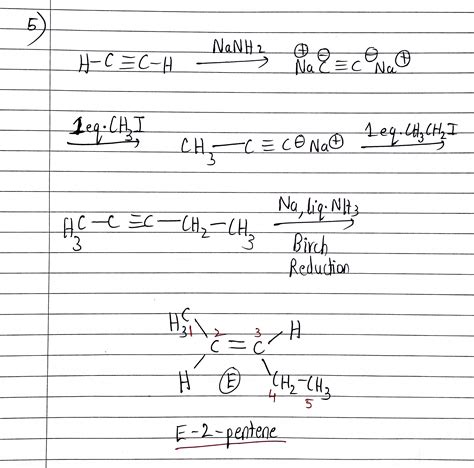 5)
H-C≡C-H NaNH2 ⊕Na C⊖≡C⊖ Na⊕
1eq.CH3I CH3-C≡C⊖Na⊕ 1eq.CH3CH2I
H3C-C≡C-CH2-CH3 Na, liq. NH3
Birch
Reduction
H3C 1 2 3 H
C=C
H E CH2-CH3
4 5
E-2-pentene